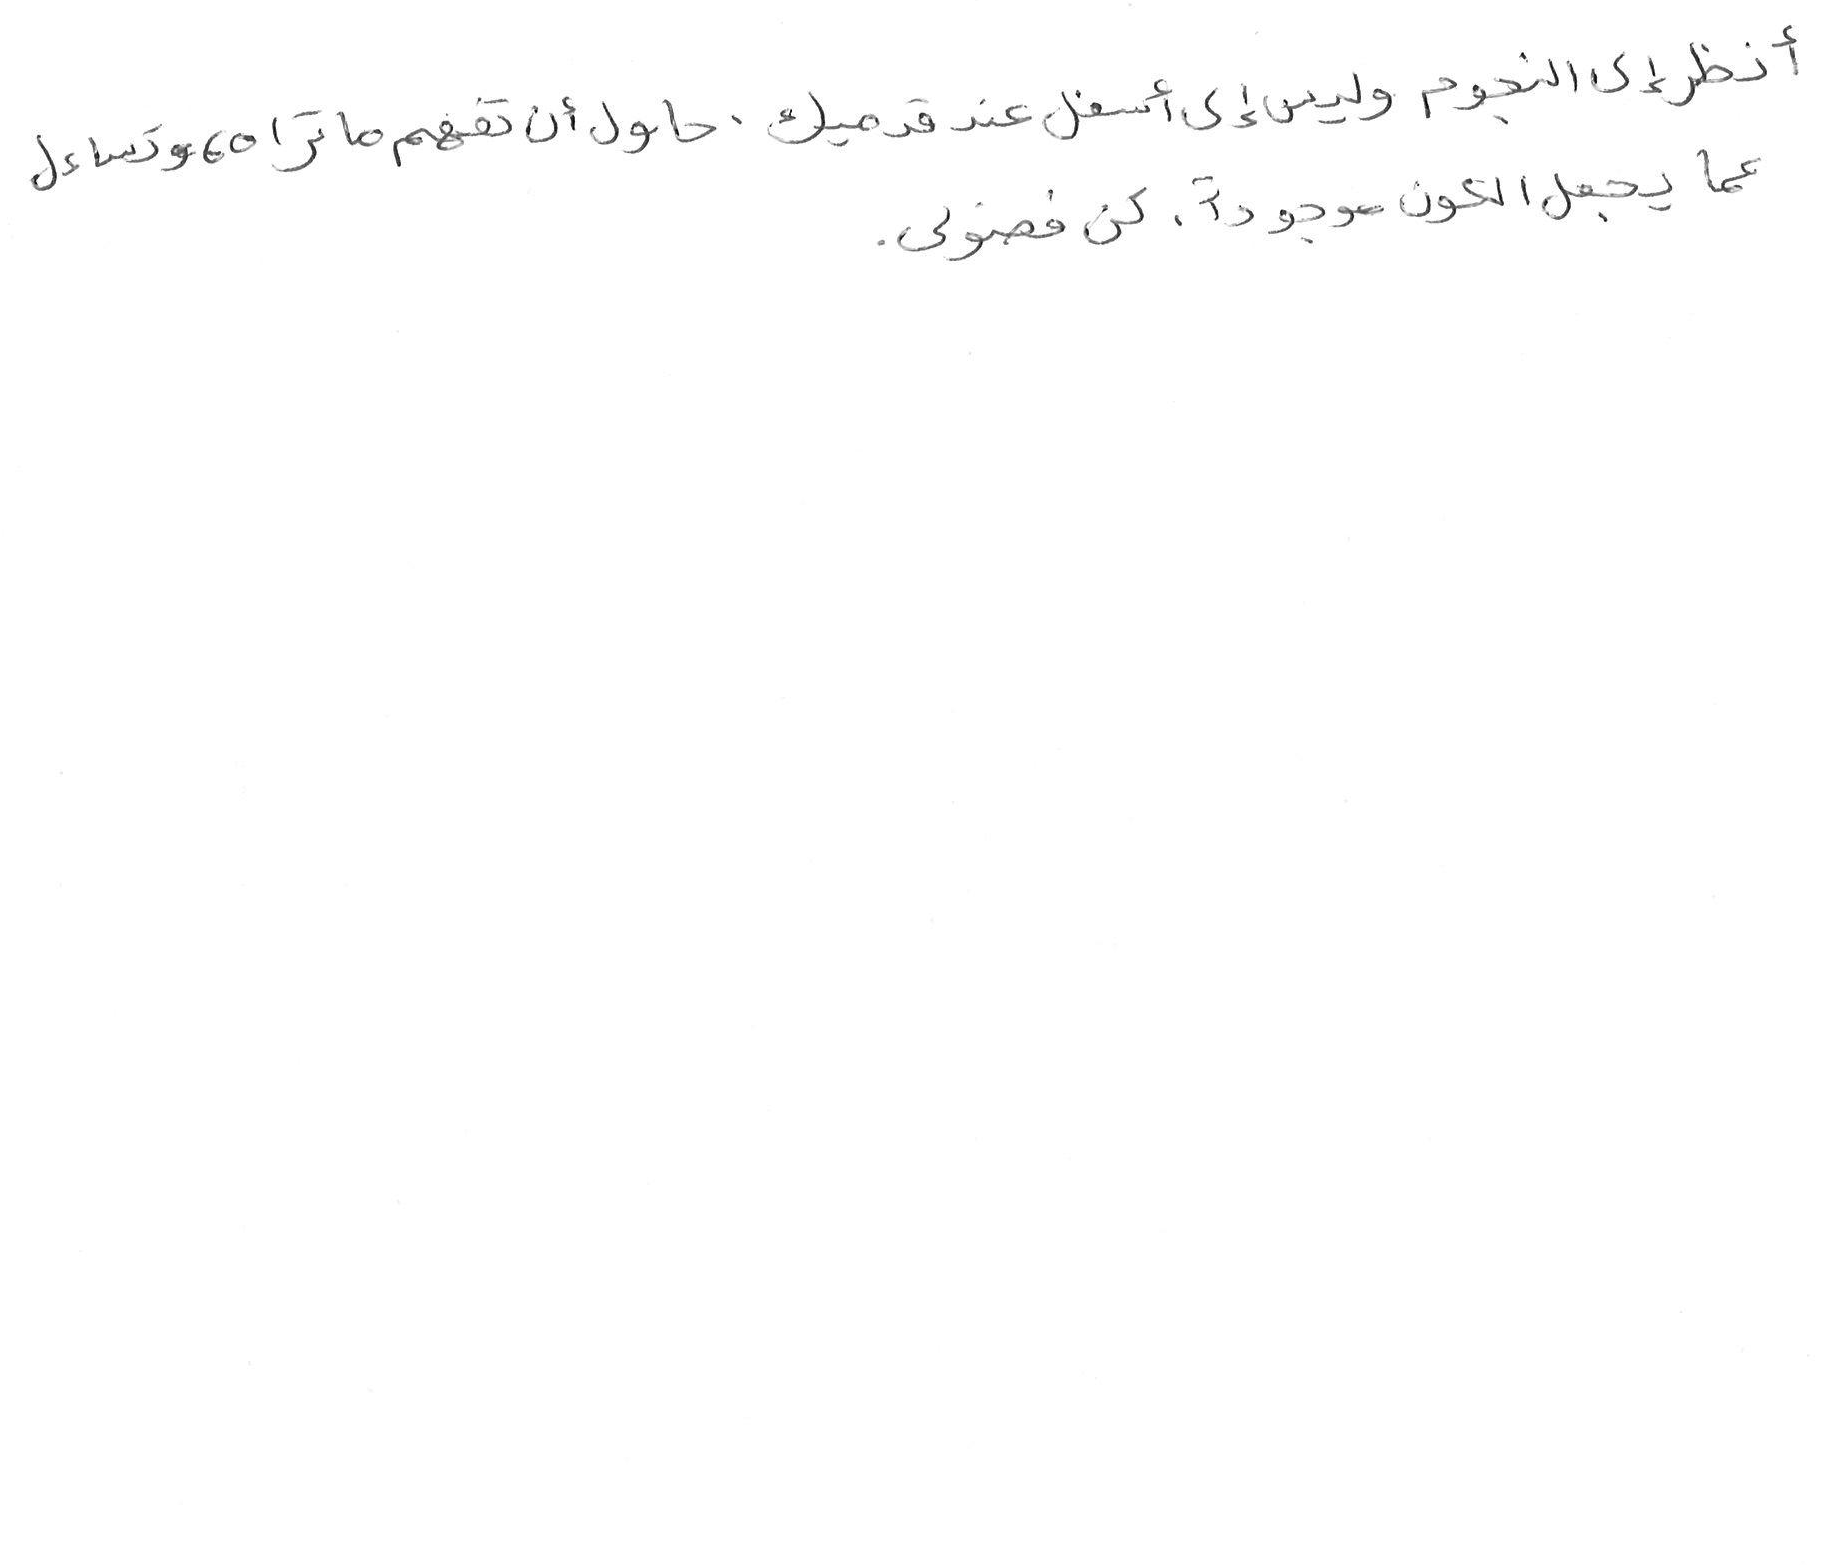 أنظر إلى النجوم وليس إلى أسفل عند قدميك. حاول أن تفهم ما تراه، وتساءل
عما يجعل الكون موجوداً. كن فضولى.